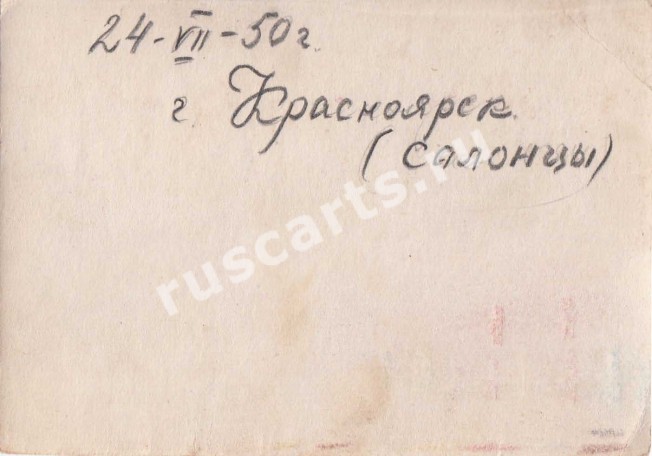 24-VII-50г.
г. Красноярск.
(салонцы)
ruscarts.ru